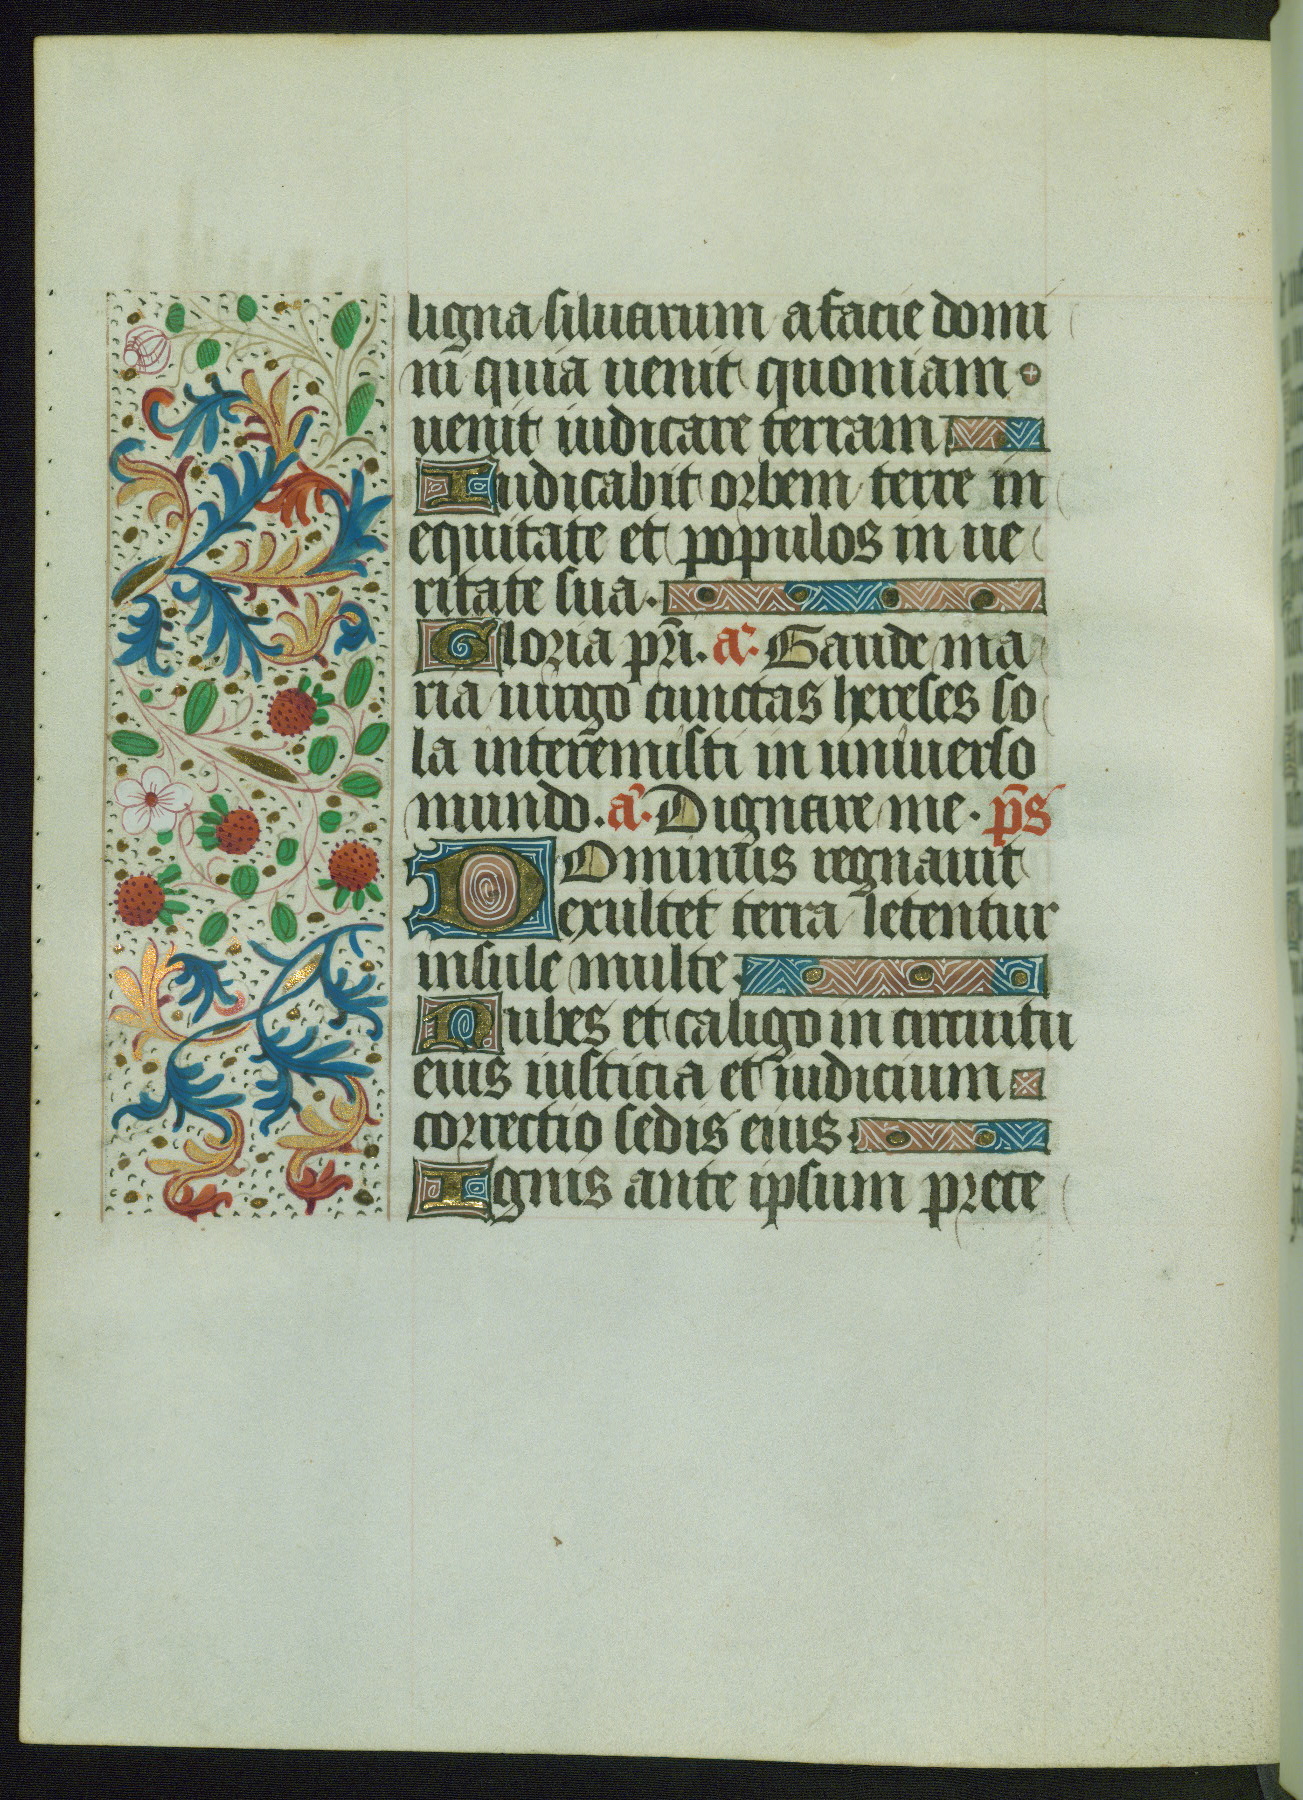 ligna siluarum a facie domi
ni quia uenit quoniam
uenit iudicare terram
Iudicabit orbem terre in
equitate et populos in ue
ritate sua.
Gloria pr̃i. a᷑. Gaude ma
ria uirgo cunctas hereses so
la interemisti in uniuerso
mundo. a᷑. Dignare me. p̃s
Dominus regnauit
exultet terra letentur
insule multe
Nubes et caligo in circuitu
eius iusticia et iudicium
correctio sedis eius
Ignis ante ipsum prece